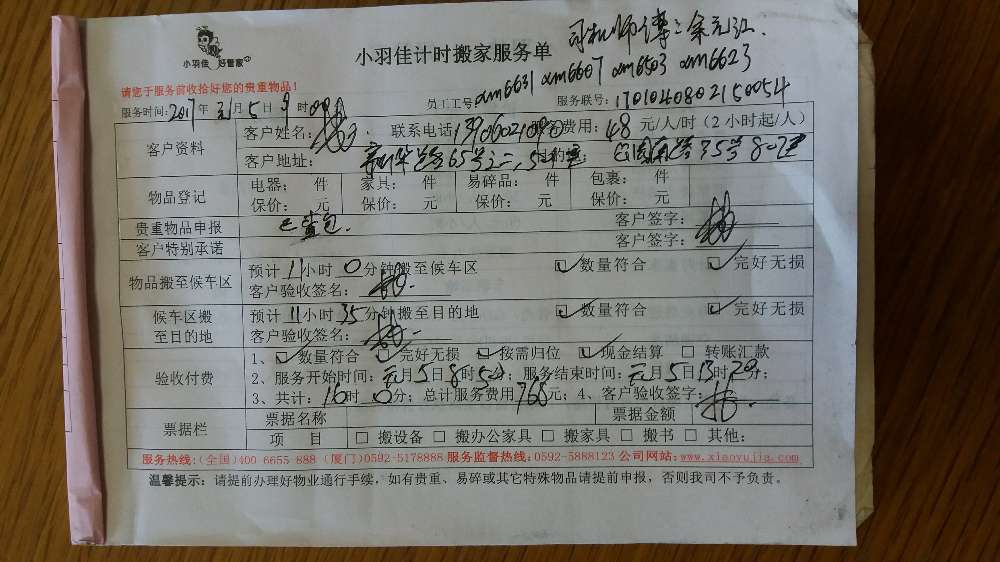 司机师傅:余元江.
小羽佳 好管家
小羽佳计时搬家服务单
请您于服务前收拾好您的贵重物品!
xm6631 xm6607 xm6503 xm6623
服务时间:2017年元月5日9时
员工工号: 服务联号:1701040802150054
客户资料 客户姓名: 联系电话 服务费用:48元/人/时(2小时起/人)
客户地址: 65号之二 35号802
物品登记 电器: 件 家具: 件 易碎品: 件 包裹: 件
保价: 元 保价: 元 保价: 元 保价: 元
贵重物品申报 已查包. 客户签字:
客户特别承诺 客户签字:
物品搬至候车区 预计11小时0分钟搬至候车区 数量符合 完好无损
客户验收签名:
候车区搬至目的地 预计11小时35分钟搬至目的地 数量符合 完好无损
客户验收签名:
验收付费 1、数量符合 完好无损 按需归位 现金结算 □ 转账汇款
2、服务开始时间:元月5日8时50分;服务结束时间:元月5日13时20分;
3、共计:16时0分;总计服务费用768元;4、客户验收签字:
票据栏 票据名称 票据金额
项 目 □ 搬设备 □ 搬办公家具 □ 搬家具 □ 搬书 □ 其他:
服务热线:(全国)400-6655-888 (厦门)0592-5178888 服务监督热线:0592-5888123 公司网站:www.xiaoyujia.com
温馨提示:请提前办理好物业通行手续,如有贵重、易碎或其它特殊物品请提前申报,否则我司不予负责。